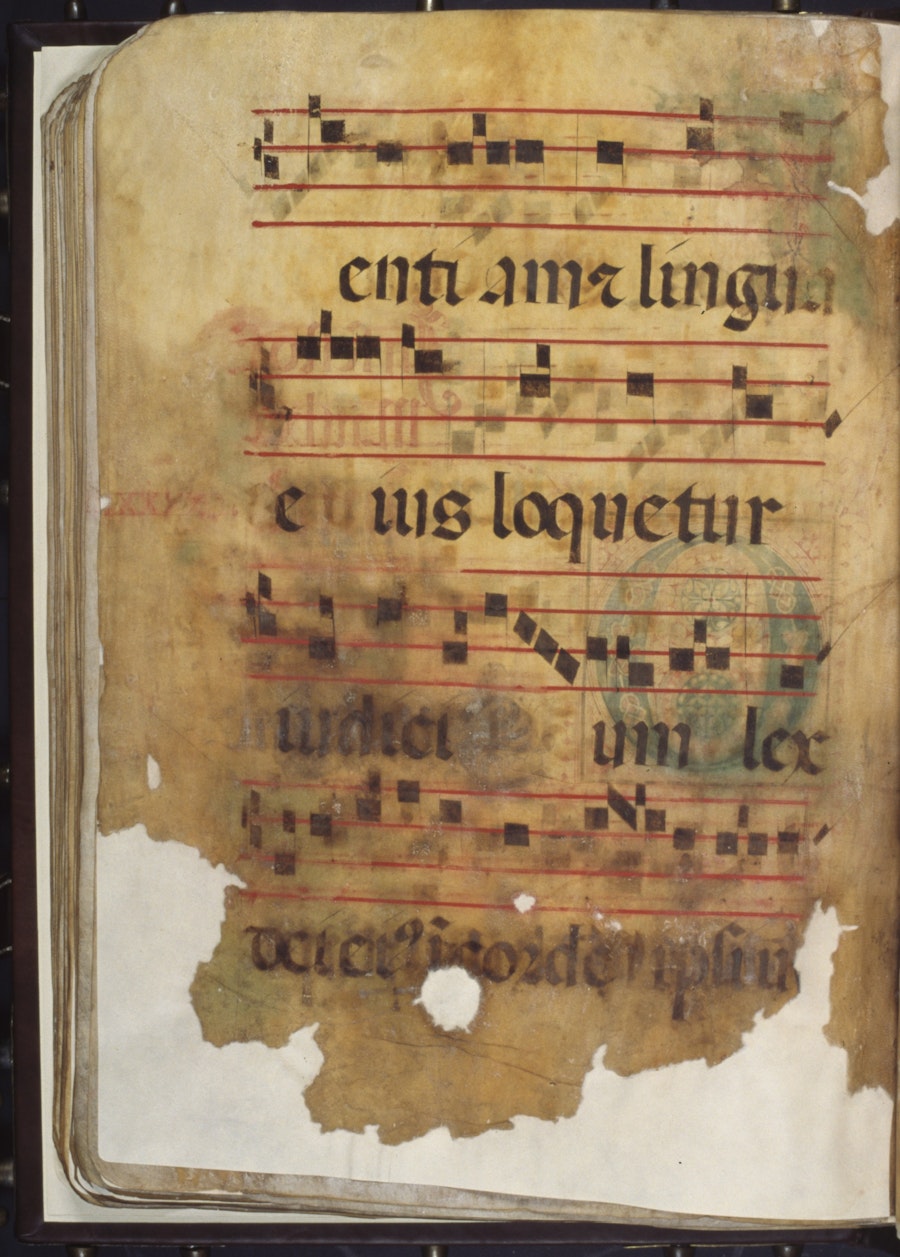 enti am ⁊ lingua
e ius loquetur
iudici um lex
dei ei⁹ i corde ipsius